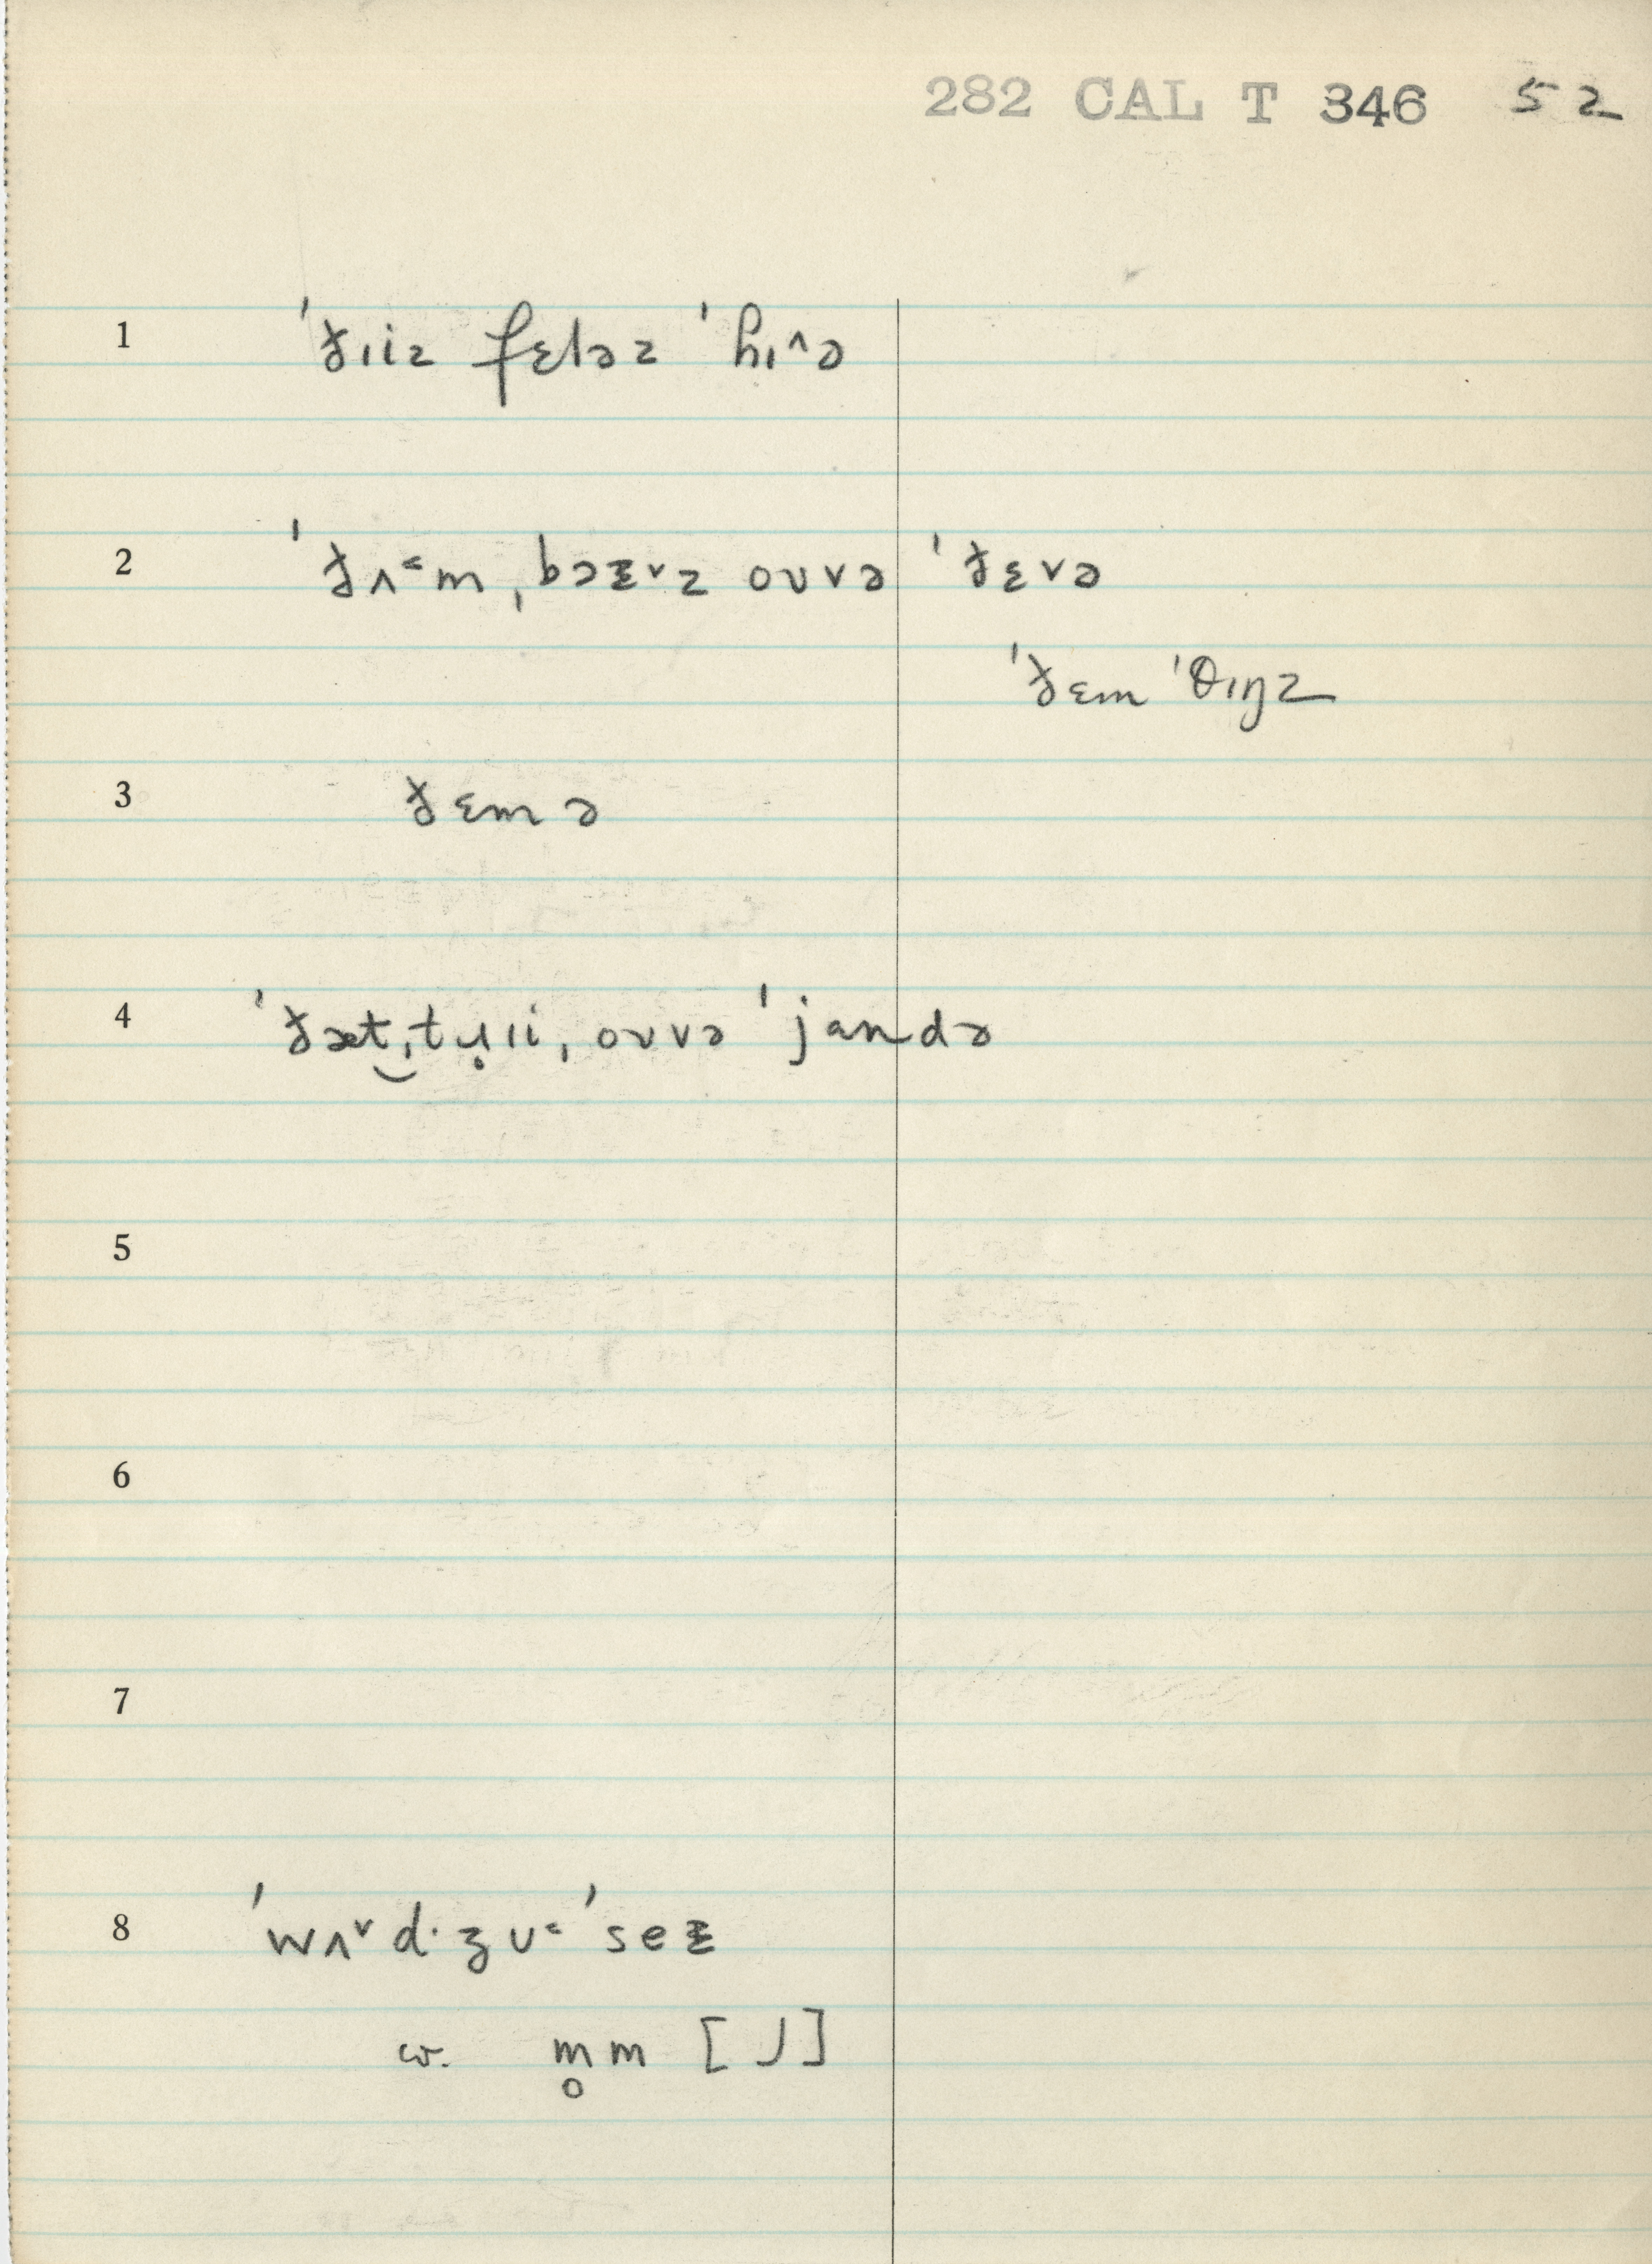 282 CAL T 346 52
1 ˈðɪiz fɛləz ˈhɪ^ə
2 ˈðʌ˂m ˌbɔɪ˅z oʊvə ˈðɛvə
ˈðɛm ˈθɪŋz
3 ðɛm ə
4 ˈðæt‿ˌtɹ̥ɪi ˌoʊvə ˈjandə
5
6
7
8 ˈwʌ˅d·ʒʊ˂ ˈseɪ
cv. m̥m [ J ]